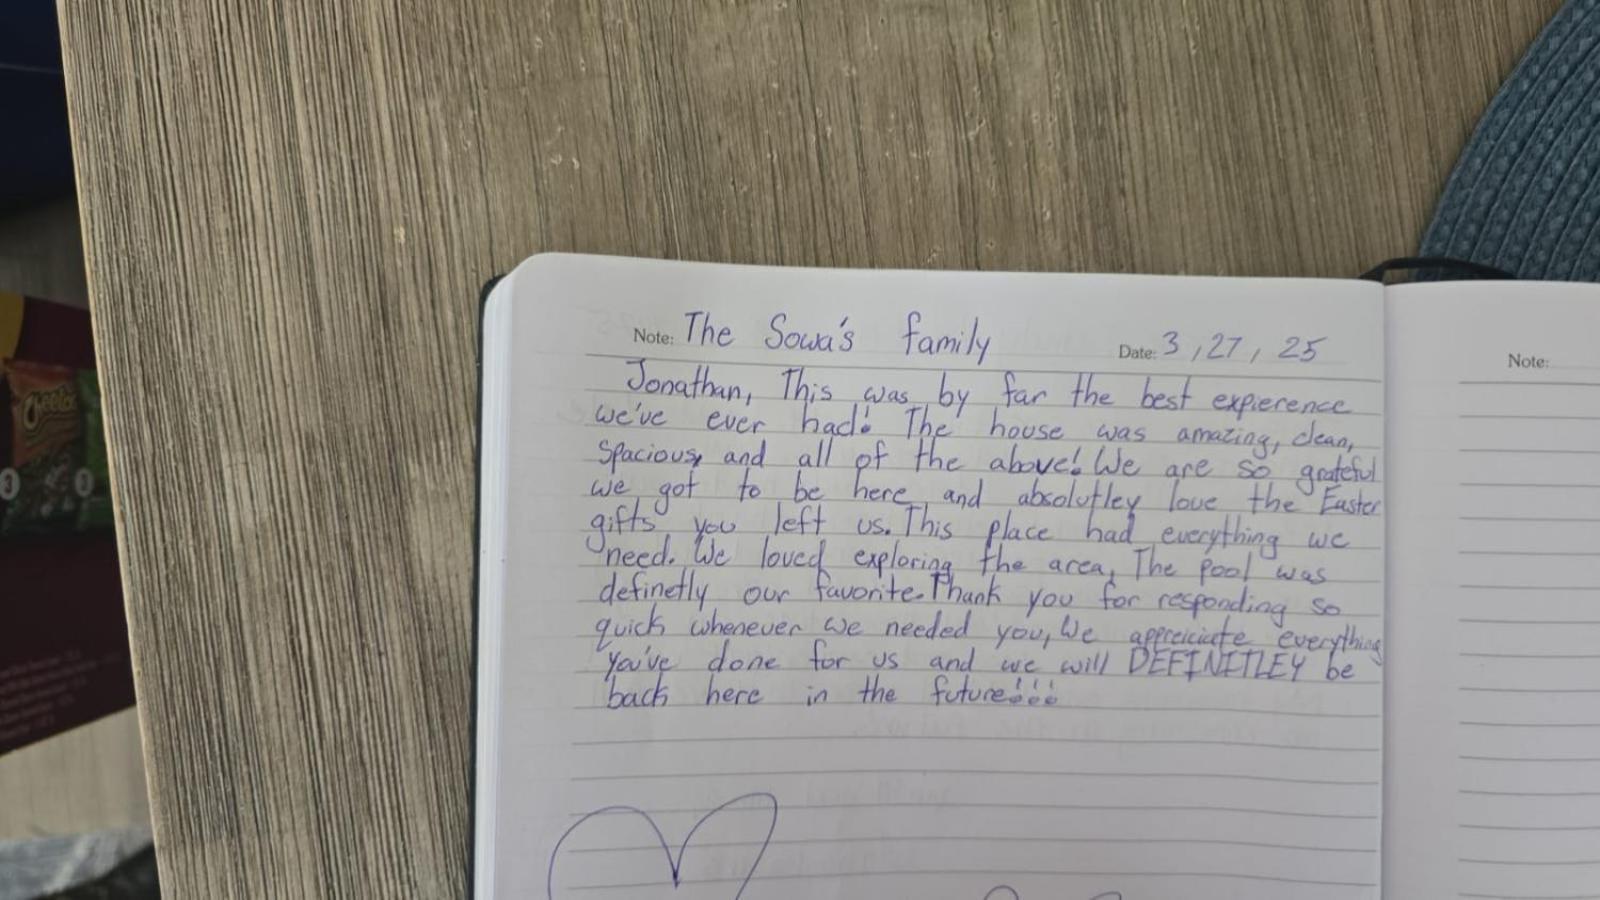 Note: The Sowa's family Date: 3, 27, 25
Jonathan, This was by far the best expierence
we've ever had! The house was amazing, clean,
Spacious, and all of the above! We are so grateful
we got to be here and absolutley love the Easter
gifts you left us. This place had everything we
need. We loved exploring the area, The pool was
definetly our favorite. Thank you for responding so
quick whenever we needed you, We appreiciate everything
you've done for us and we will DEFINITLEY be
back here in the future!!!
Note:
Cheetos